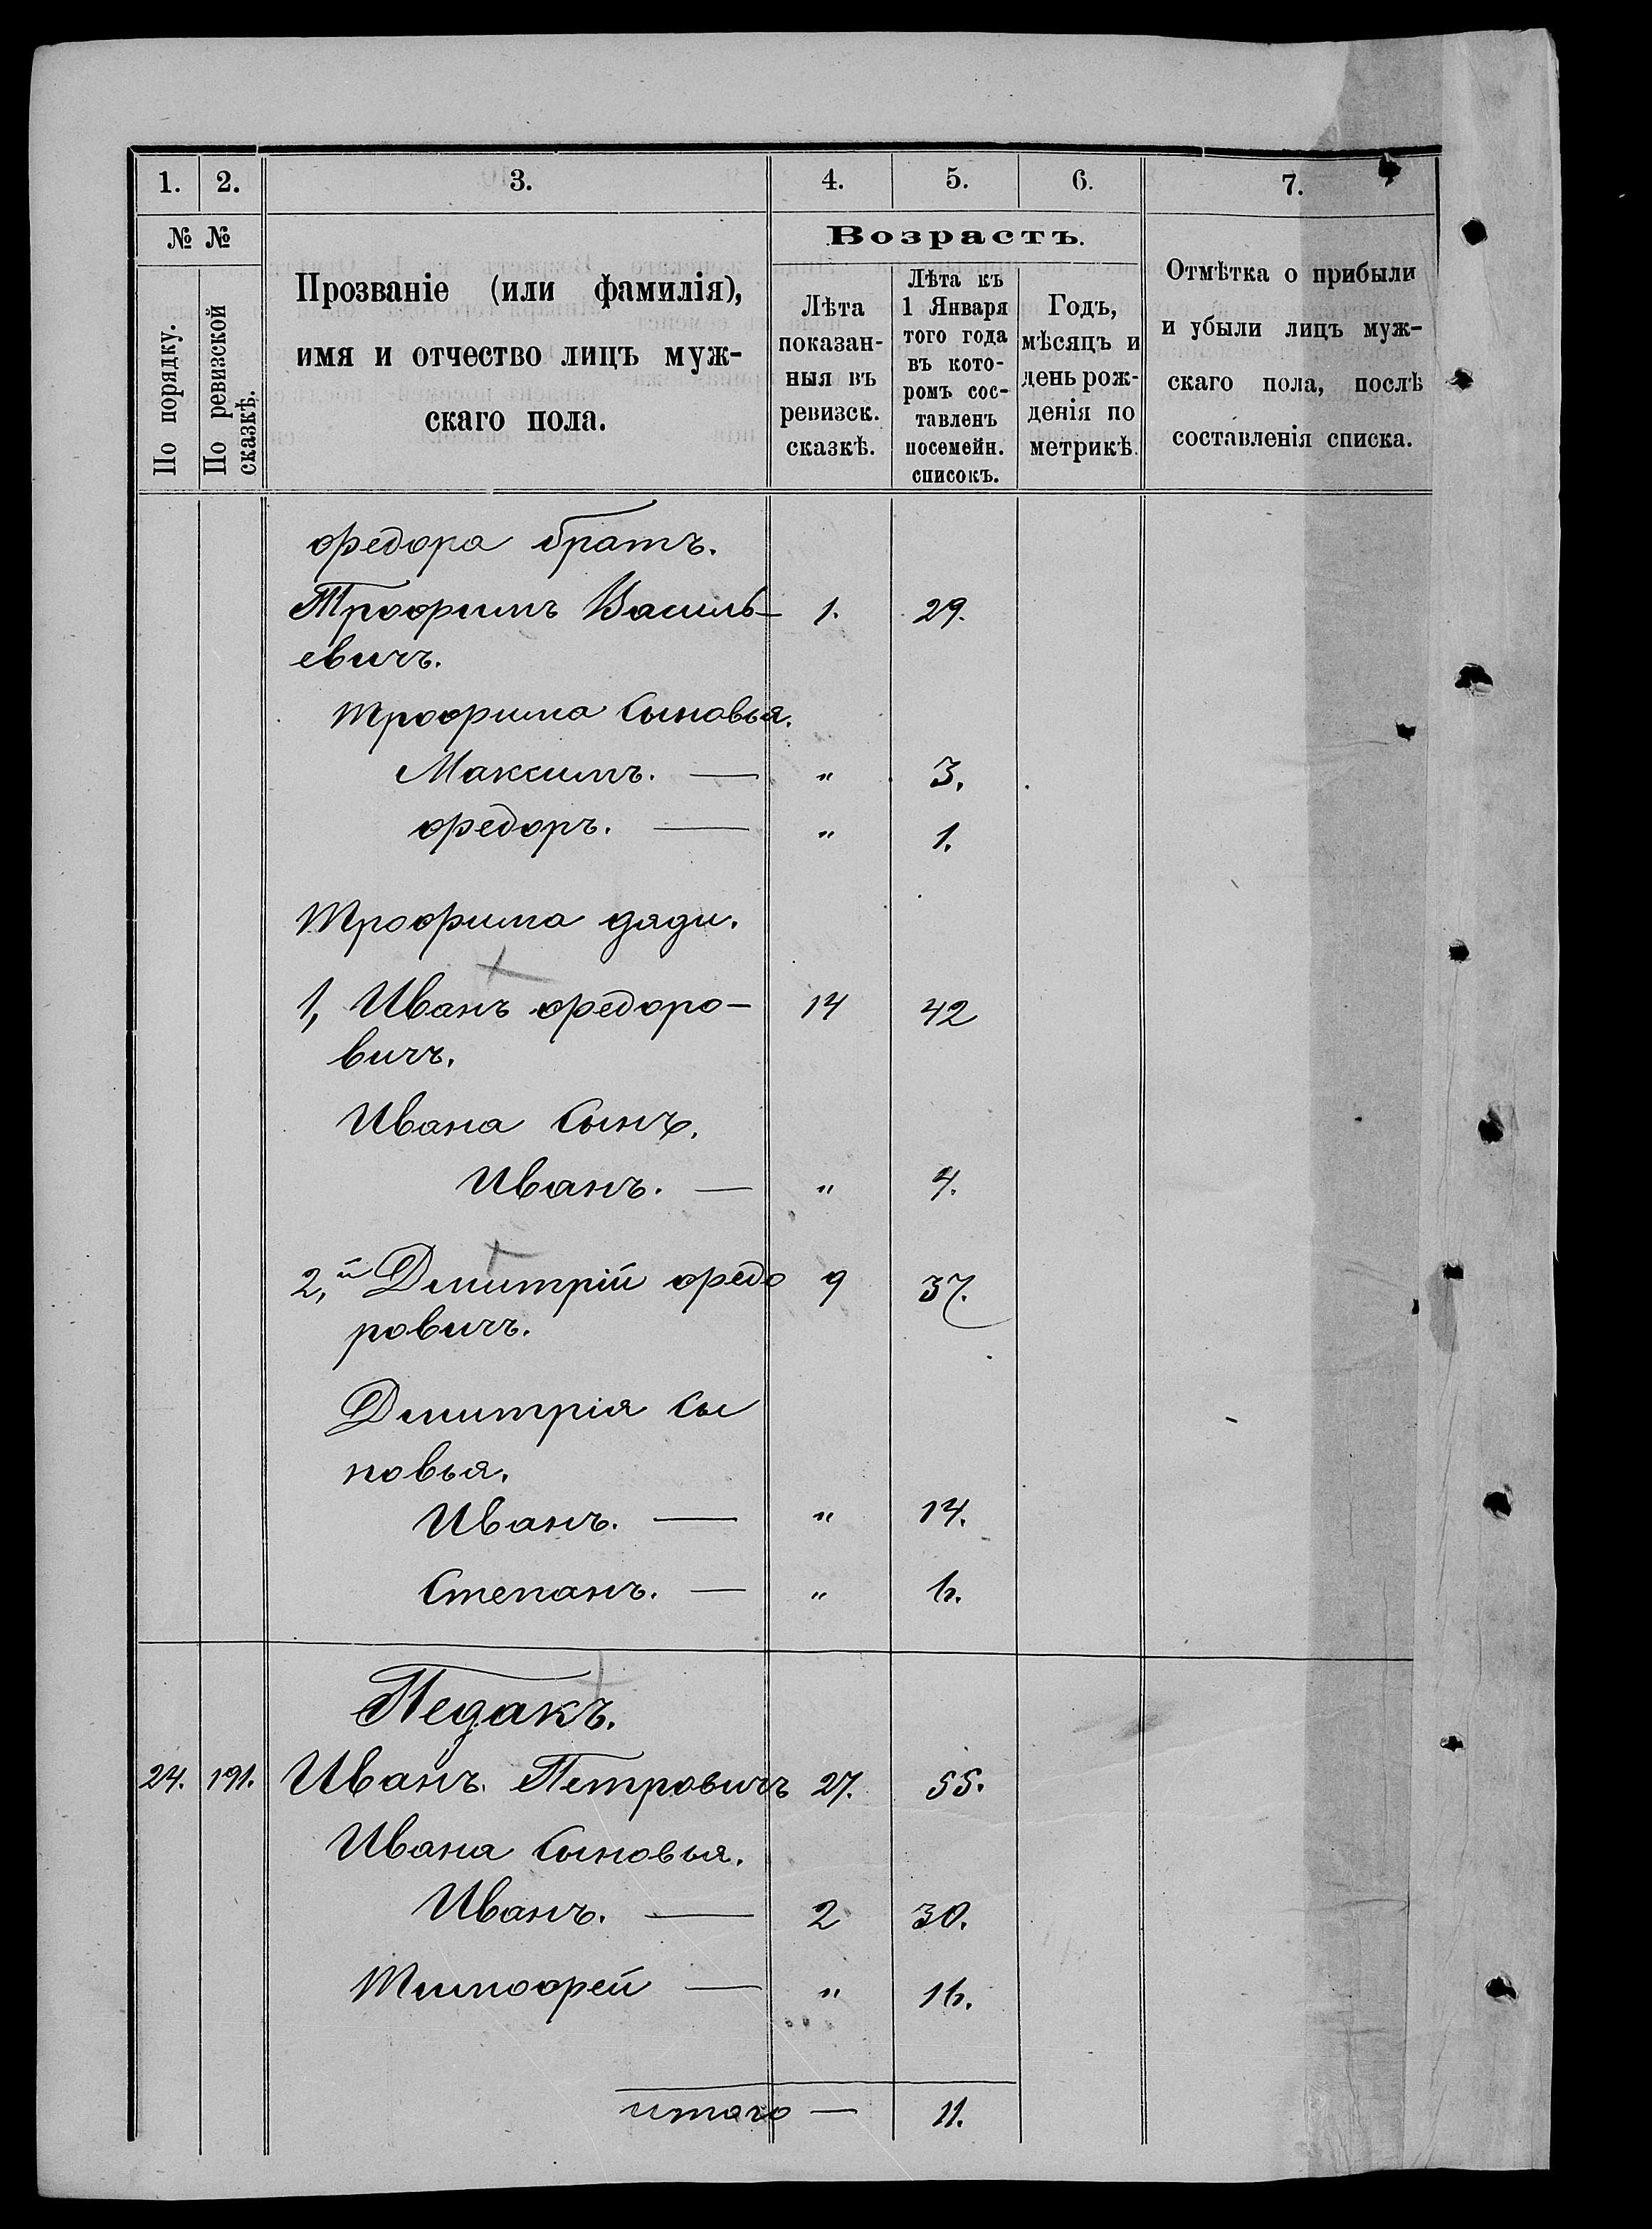 1. 2. 3. 4. 5. 6. 7.
№ №
По порядку.
По ревизской сказкѣ.
Прозваніе (или фамилія),
имя и отчество лицъ муж-
скаго пола.
Возрастъ.
Лѣта
показан-
ныя въ
ревизск.
сказкѣ.
Лѣта къ
1 Января
того года
въ кото-
ромъ сос-
тавленъ
посемейн.
списокъ.
Годъ,
мѣсяцъ и
день рож-
денія по
метрикѣ.
Отмѣтка о прибыли
и убыли лицъ муж-
скаго пола, послѣ
составленія списка.
Федора братъ.
Трофимъ Василь- 1. 29.
евичъ.
Трофима Сыновья.
Максимъ. — " 3.
Федоръ. — " 1.
Трофима дяди.
1, Иванъ Федоро- 14 42
вичъ.
Ивана Сынъ.
Иванъ. — " 4.
2,й Дмитрій Федо 9 37.
ровичъ.
Дмитрія Сы
новья.
Иванъ. — " 14.
Степанъ. — " 6.
Педакъ.
24. 191. Иванъ Петровичъ 27. 55.
Ивана Сыновья.
Иванъ. — 2 30.
Тимофей — " 16.
итого — 11.